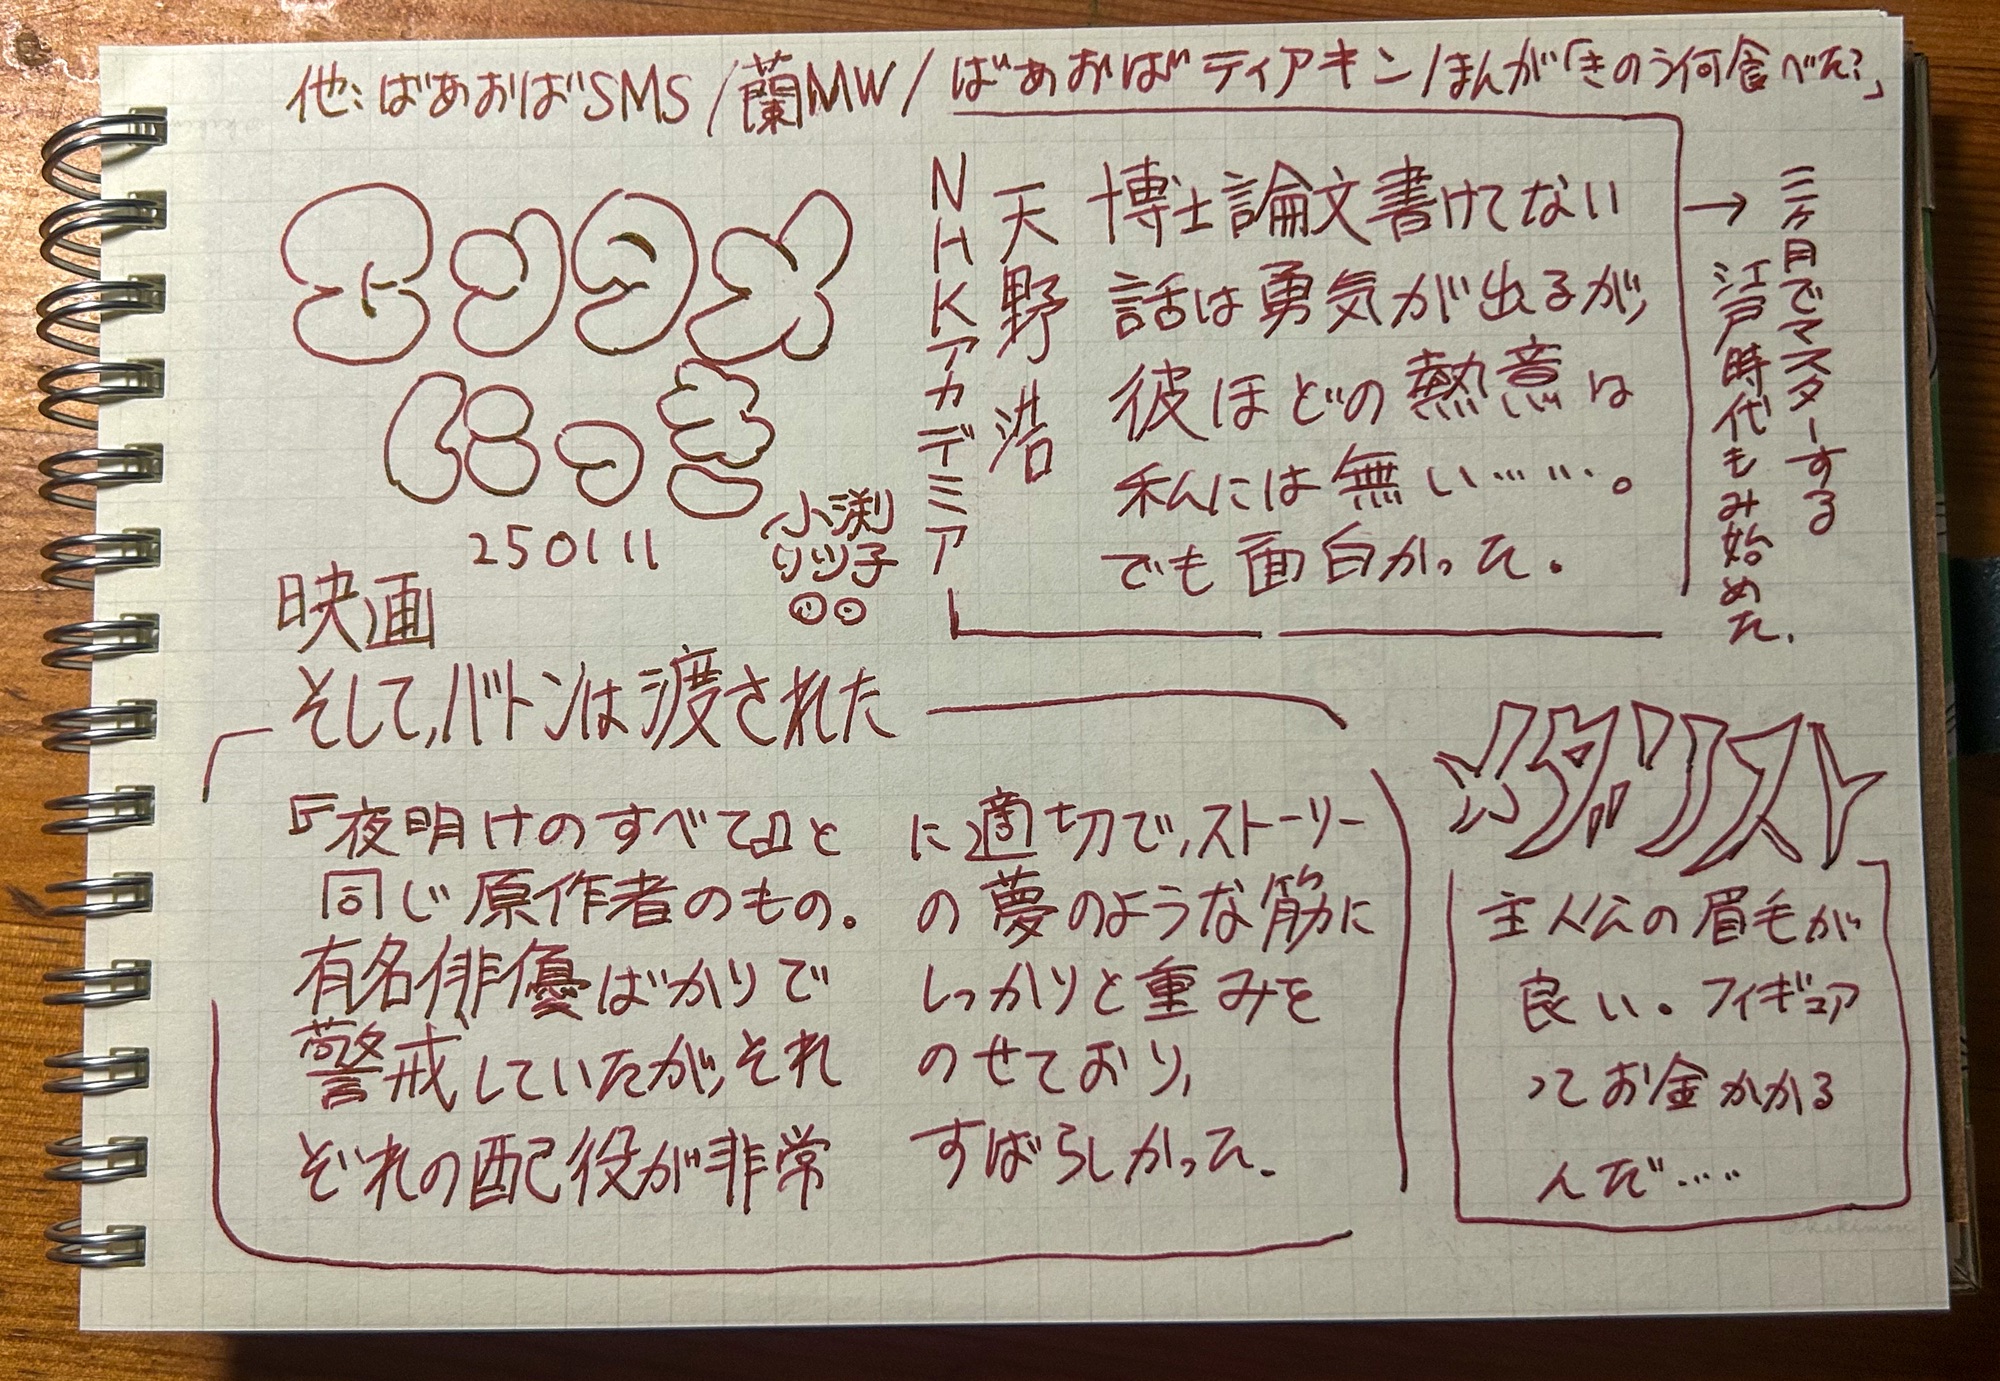 他:ばあおばSMS/蘭MW/ばあおばティアキン/まんが「きのう何食べた?」
エンタメ
にっき
250111
小渕
リツ子
NHKアカデミア
天野浩
博士論文書けてない
話は勇気が出るが、
彼ほどの熱意は
私には無い……。
でも面白かった。
→
三ヶ月でマスターする
江戸時代もみ始めた。
映画
そして、バトンは渡された
『夜明けのすべて』と
同じ原作者のもの。
有名俳優ばかりで
警戒していたが、それ
ぞれの配役が非常
に適切で、ストーリー
の夢のような筋に
しっかりと重みを
のせており、
すばらしかった。
メダリスト
主人公の眉毛が
良い。フィギュア
ってお金かかる
んだ……